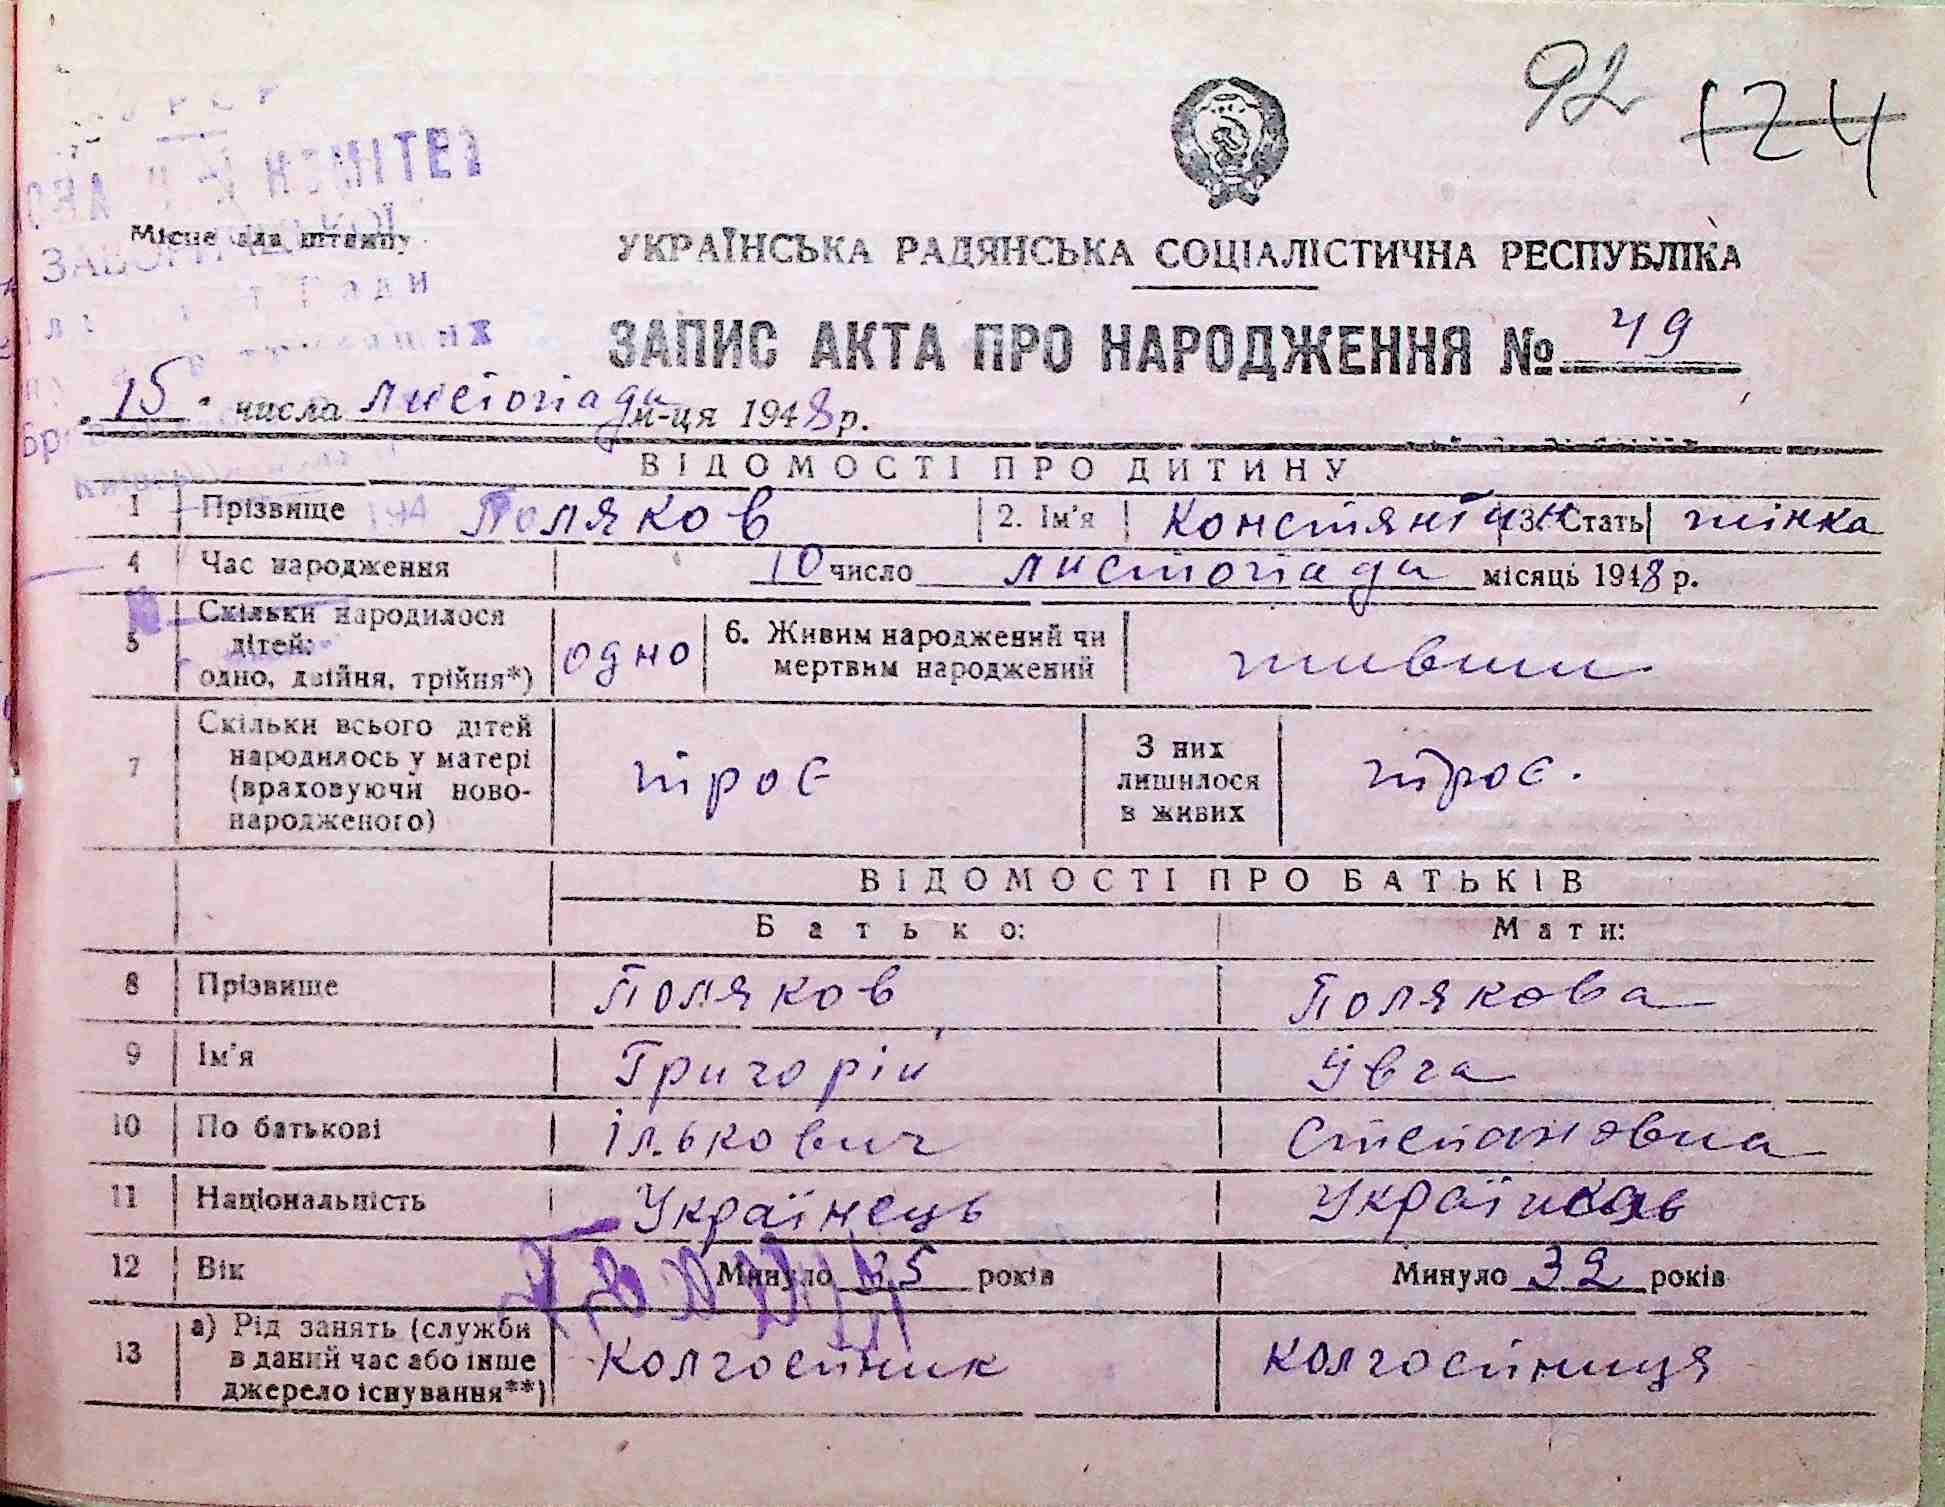 92 124
КОМІТЕТ
Місце для штампу
УКРАЇНСЬКА РАДЯНСЬКА СОЦІАЛІСТИЧНА РЕСПУБЛІКА
ЗАПИС АКТА ПРО НАРОДЖЕННЯ № 49
"15" числа листопада м-ця 1948 р.
ВІДОМОСТІ ПРО ДИТИНУ
1 Прізвище Поляков 2. Ім'я Констянтин 3. Стать жінка
4 Час народження 10 число листопада місяць 1948 р.
5 Скільки народилося дітей: одно, двійня, трійня*) одно 6. Живим народжений чи мертвим народжений живим
7 Скільки всього дітей народилось у матері (враховуючи ново-народженого) троє З них лишилося в живих троє.
ВІДОМОСТІ ПРО БАТЬКІВ
Батько: Мати:
8 Прізвище Поляков Полякова
9 Ім'я Григорій Ївга
10 По батькові Ількович Степановна
11 Національність Українець
12 Вік Минуло 35 років Минуло 32 років
13 а) Рід занять (служби в даний час або інше джерело існування**) Колгоспник колгоспниця